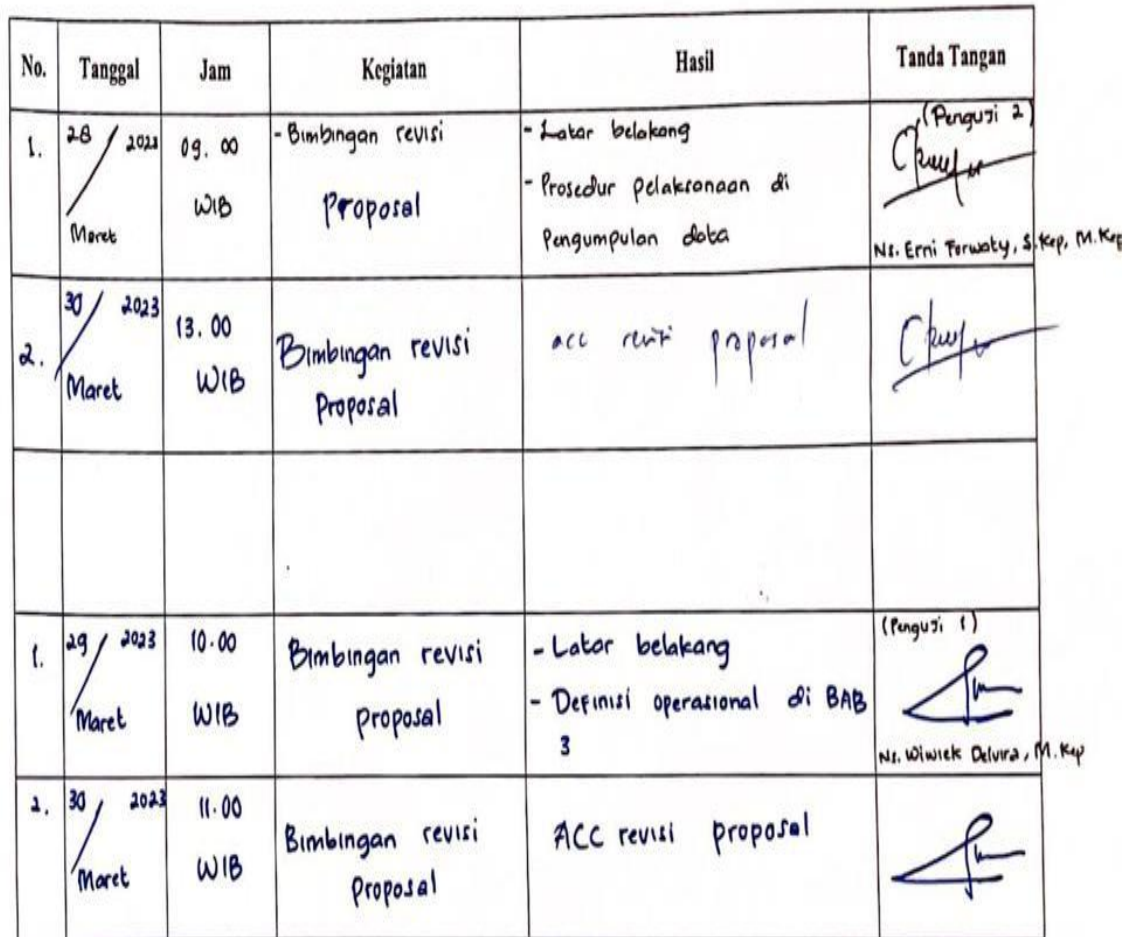 No. Tanggal Jam Kegiatan Hasil Tanda Tangan
1. 28 / Maret 2023 09.00 WIB
- Bimbingan revisi
Proposal
- Latar belakang
- Prosedur pelaksanaan di
Pengumpulan data
(Penguji 2)
Ns. Erni Forwaty, S.Kep, M.Kep
2. 30 / Maret 2023 13.00 WIB
Bimbingan revisi
Proposal
acc revisi proposal
1. 29 / Maret 2023 10.00 WIB
Bimbingan revisi
proposal
- Latar belakang
- Definisi operasional di BAB
3
(Penguji 1)
Ns. Wiwiek Delvira, M.Kep
2. 30 / Maret 2023 11.00 WIB
Bimbingan revisi
Proposal
ACC revisi proposal